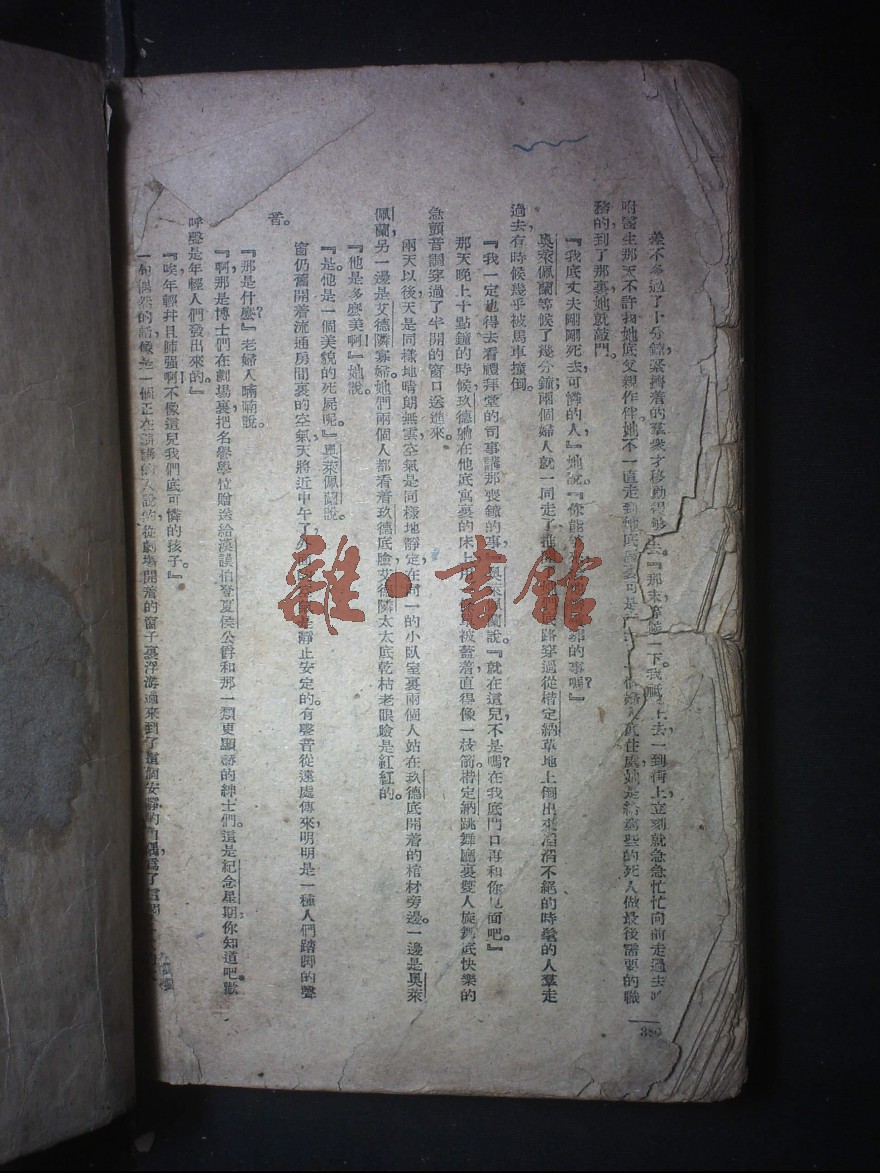 差不多過了十分鐘緊擠着的羣衆才移動得够 去。『那末 一下。我 上去，一到街上立刻就急急忙忙向前走過去
咐醫生那天不許我她底父親作伴她不一直走到 可是 婦人 住處她是給窮些的死人做最後需要的職
務的到了那裏她就敲門。
『我底丈夫剛剛死去可憐的人，』她說。『你能 的事嗎？
奧萊佩蘭等候了幾分鐘；兩個婦人就一同走了 路穿過從楷定納草地上倒出來滔滔不絕的時髦的人羣走
過去，有時候幾乎被馬車撞倒。
『我一定也得去看禮拜堂的司事講那喪鐘的事，』奧萊佩蘭說。『就在這兒，不是嗎？在我底門口再和你見面吧。』
那天晚上十點鐘的時候玖德躺在他底寓裏的床上用 被蓋着直得像一枝箭。楷定納跳舞廳裏雙人旋舞底快樂的
急顫音調穿過了半開的窗口送進來。
兩天以後，天是同樣地晴朗無雲，空氣是同樣地靜定，在同一的小臥室裏兩個人站在玖德底開着的棺材旁邊。一邊是奧萊
佩蘭，另一邊是艾德隣寡婦。她們兩個人都看着玖德底臉，艾德隣太太底乾枯老眼瞼是紅紅的。
『他是多麼美啊！』她說。
『是。他是一個美貌的死屍呢。』奧萊佩蘭說。
窗仍舊開着流通房間裏的空氣，天將近中午了， 靜止安定的。有聲音從遠處傳來，明明是一種人們踏脚的聲
者。
『那是什麼？』老婦人喃喃說。
『啊，那是博士們在劇場裏把名譽學位贈送給漢謨伯登夏侯公爵和那一類更顯赫的紳士們。這是紀念星期，你知道吧。歡
呼聲是年輕人們發出來的。』
『唉，年輕幷且肺强啊！不像這兒我們底可憐的孩子。』
一句偶然的話，像是一個正在演講的人說的，從劇場開着的窗子裏浮游過來到了這個安靜的
雜·書館